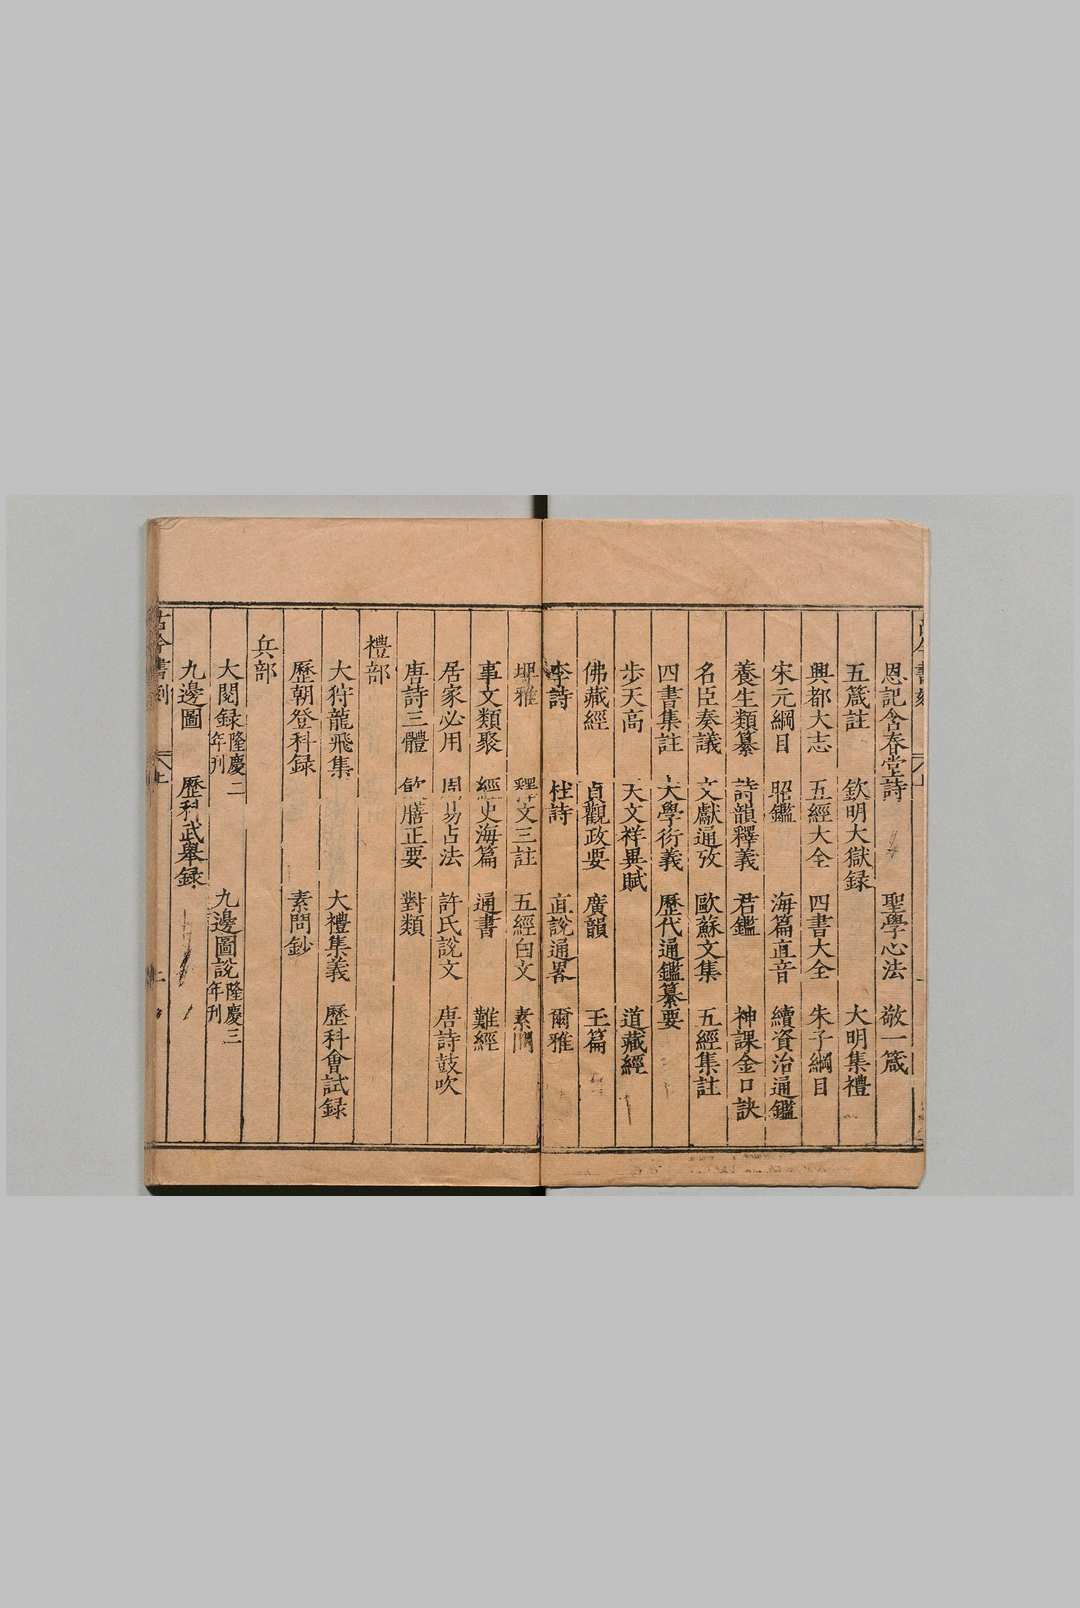 恩記含春堂詩 聖學心法 敬一箴
五箴註 欽明大獄録 大明集禮
興都大志 五經大全 四書大全 朱子綱目
宋元綱目 昭鑑 海篇直音 續資治通鑑
養生類纂 詩韻釋義 君鑑 神課金口訣
名臣奏議 文獻通攷 歐蘇文集 五經集註
四書集註 大學衍義 歷代通鑑纂要
步天高 天文祥異賦 道藏經
佛藏經 貞觀政要 廣韻 玉篇
李詩 杜詩 直說通畧 爾雅
埤雅 釋文三註 五經白文 素問
事文類聚 經史海篇 通書 難經
居家必用 周易占法 許氏說文 唐詩鼓吹
唐詩三體 飲膳正要 對類
禮部
大狩龍飛集 大禮集義 歷科會試録
歷朝登科録 素問鈔
兵部
大閱録隆慶二年刊 九邊圖說隆慶三年刊
九邊圖 歷科武舉録
古今書刻 上